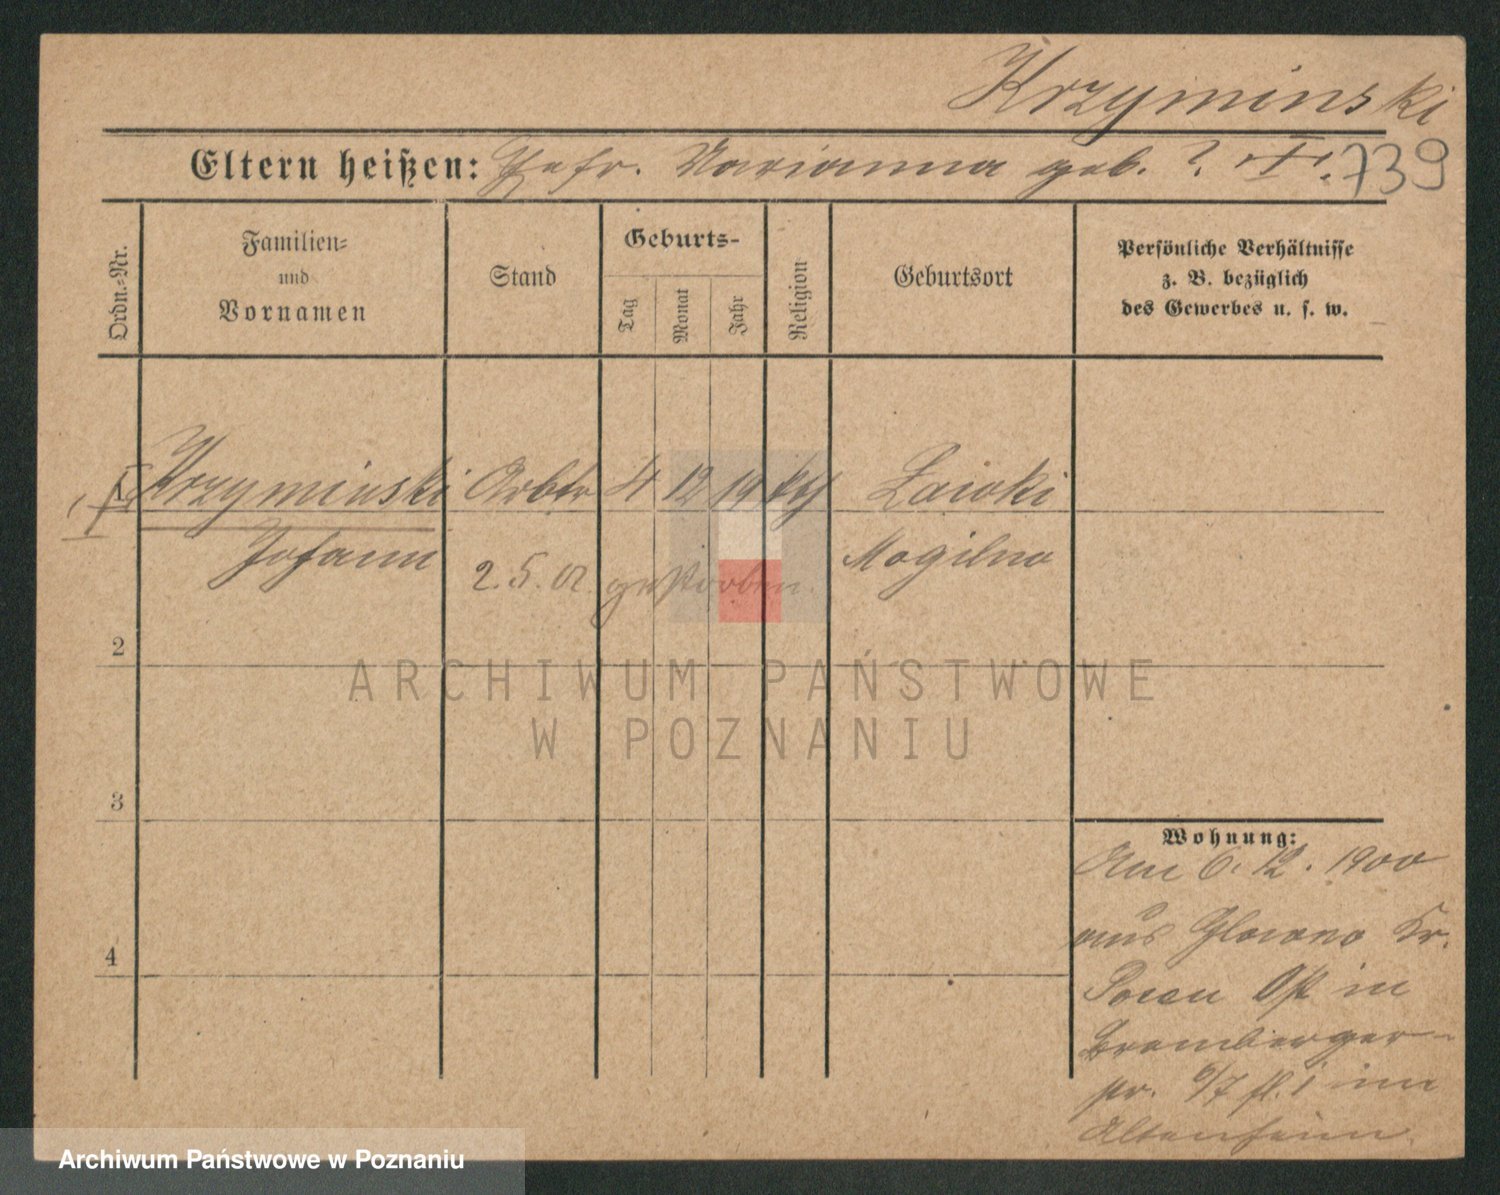 Krzyminski
Eltern heißen: Marianna geb. ? 739
Ordn.-Nr.
Familien-
und
Vornamen
Stand
Geburts-
Tag
Monat
Jahr
Religion
Geburtsort
Persönliche Verhältnisse
z. B. bezüglich
des Gewerbes u. s. w.
Krzyminski Arbtr 4 12 19 kth
Johann
2. 5. 01. gestorben.
Mogilno
2
3
4
Wohnung:
Am 6. 12. 1900
aus Glowno Kr.
Posen Ost in
Bromberger-
str. 6/7 fl. 1 im
Altenheim.
ARCHIWUM PAŃSTWOWE
W POZNANIU
Archiwum Państwowe w Poznaniu